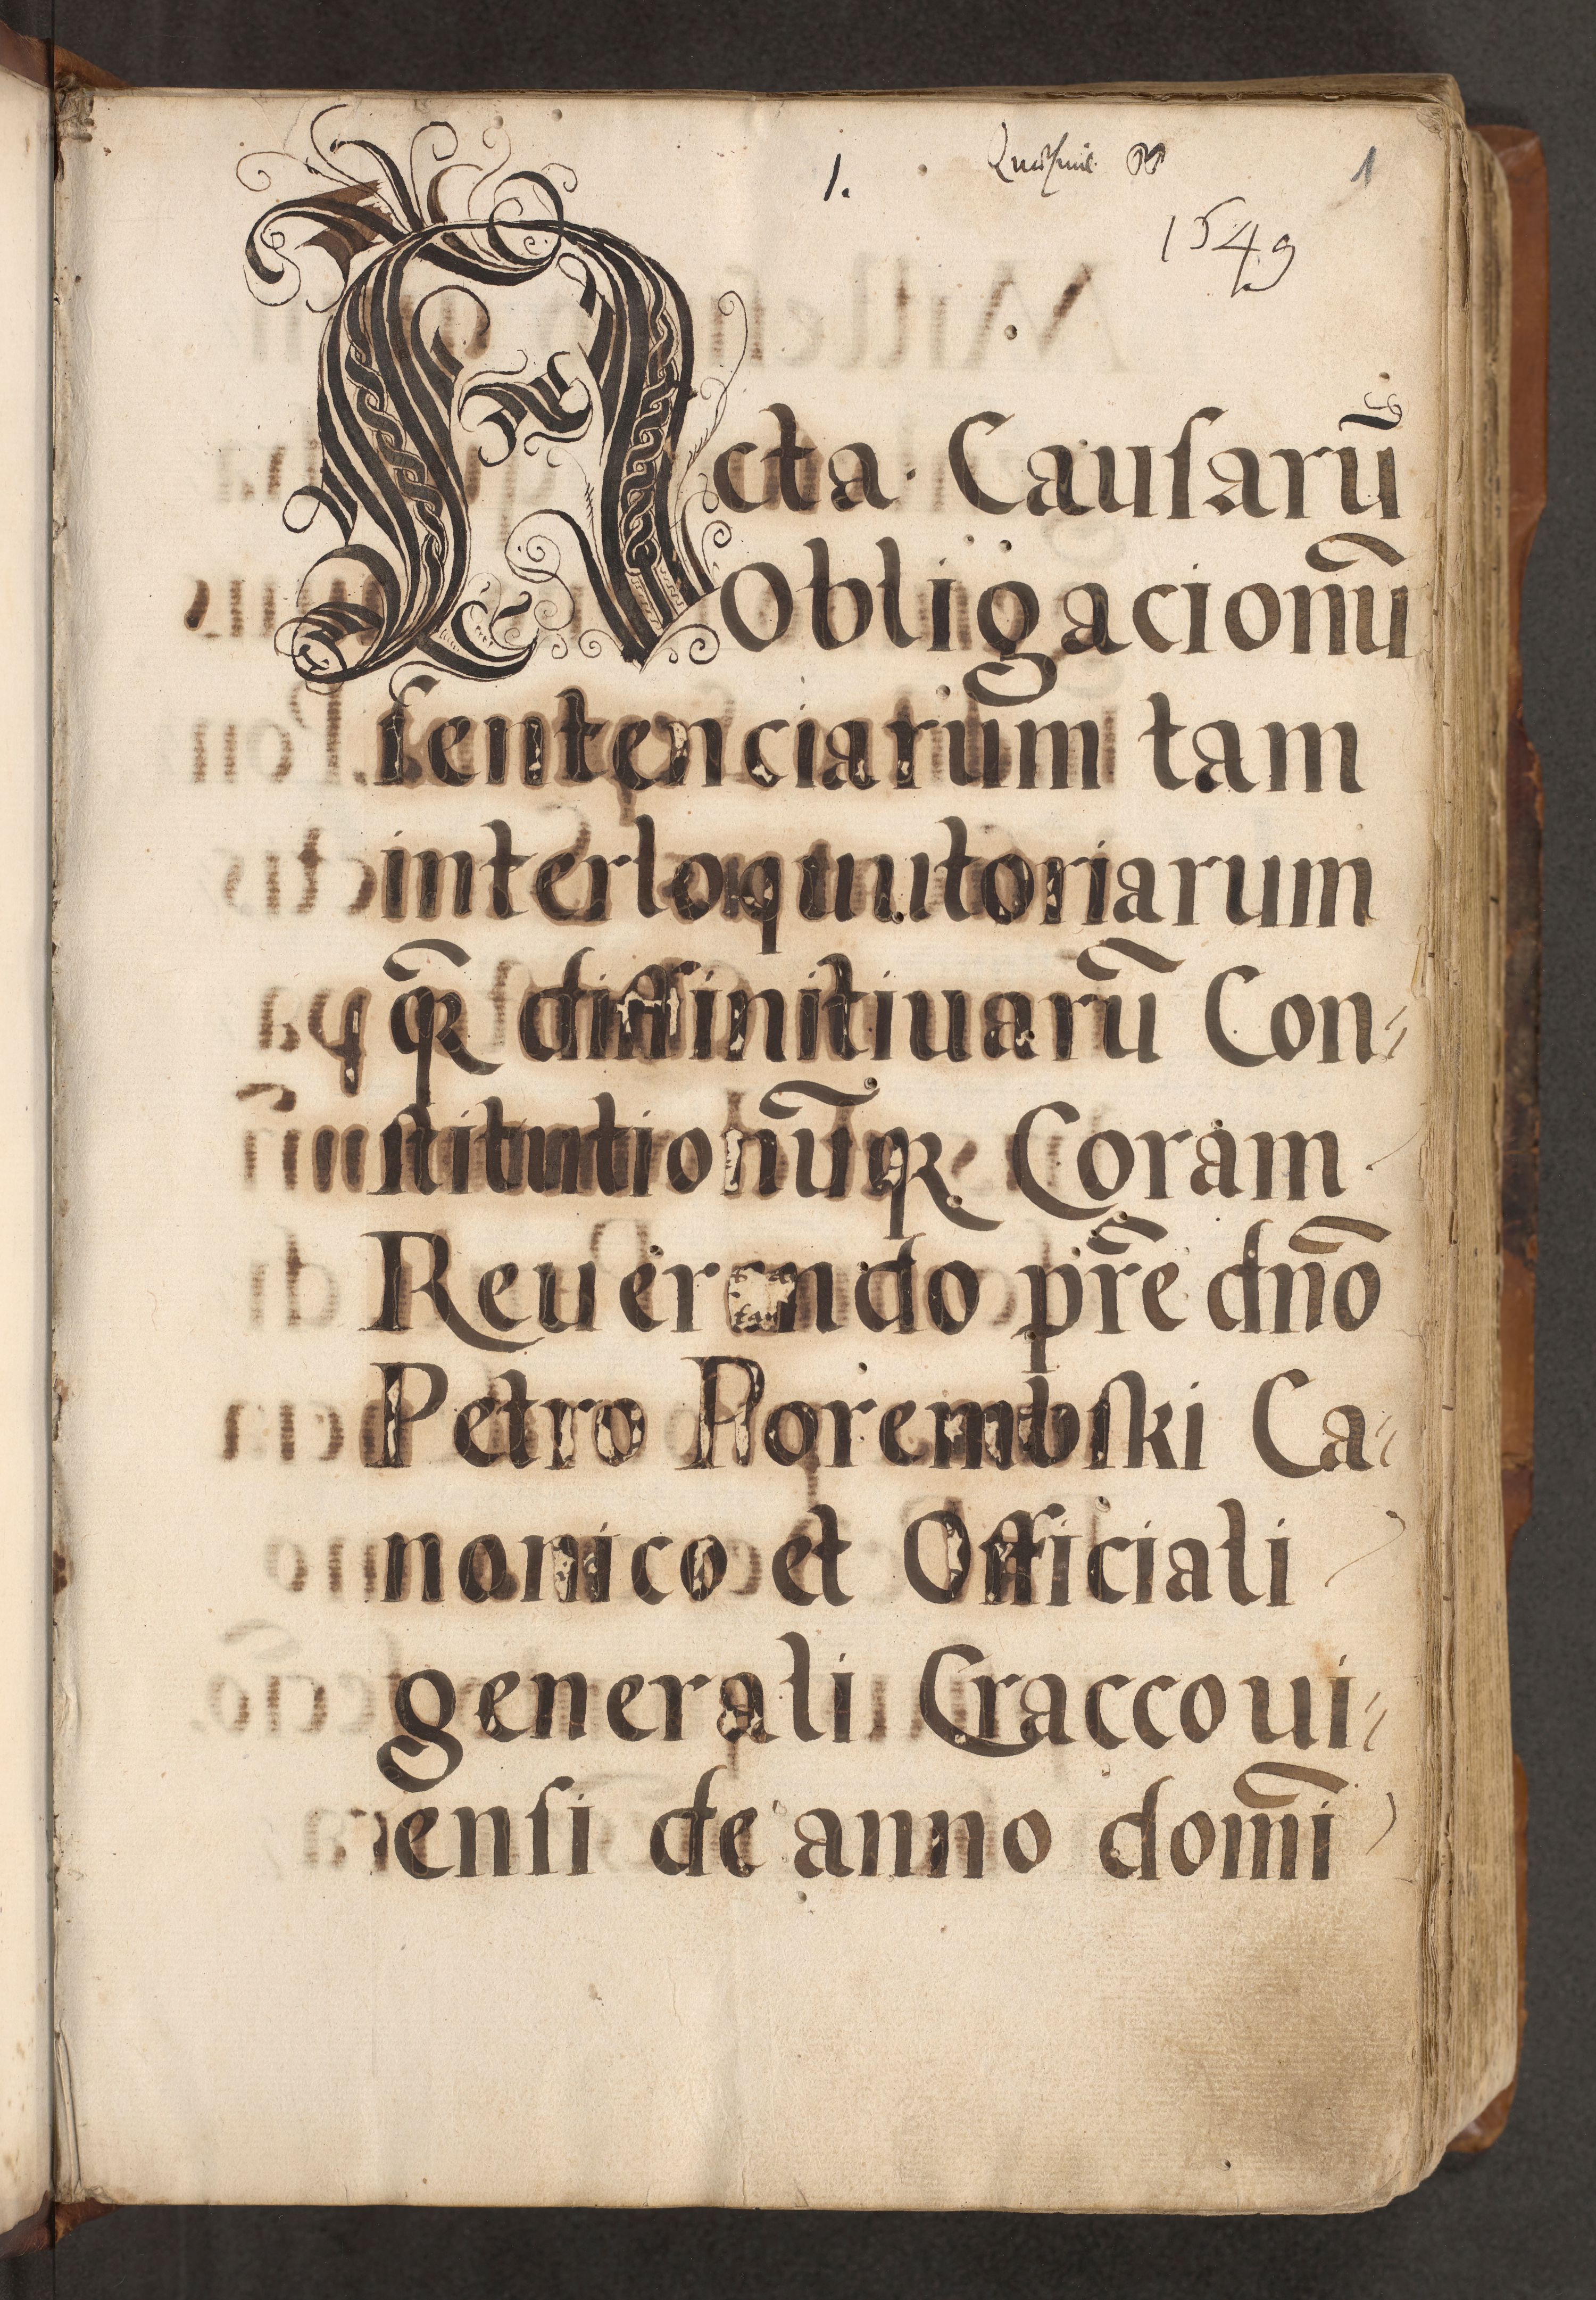 1. 1
1549
Acta Causarū
Obligacionū
ſentenciarum tam
interloquutoriarum
qꝫ diffinitiuarū Con⸗
ſtitutionūqꝫ Coram
Reuerendo pr̄e dn̄o
Petro Porembſki Ca⸗
nonico et Officiali
generali Craccoui⸗
enſi de anno dom̄i